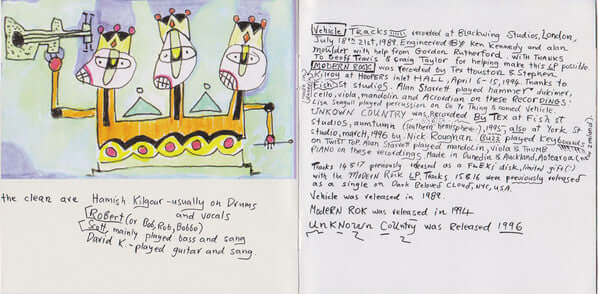 the clean are Hamish Kilgour - usually on Drums
and vocals
Robert (or Bob, Rob, Bobbo)
Scott, mainly played bass and sang
David K. - played guitar and sang
Vehicle Tracks recorded at Blackwing Studios, London,
July 18th 21st, 1989. Engineered By Ken Kennedy and alan
moulder with help from Gordon Rutherford. WITH THANKS
To Geoff Travis & Craig Taylor for helping make this LP possible
MODERN ROCK was recorded by Tex Houston & Stephen
Kilroy at HOOPERS inlet HALL, April 6-15, 1994. Thanks to
Fish St studios. Alan Starrett played hammer dulcimer,
cello, viola, mandolin and Accordian on these RECORDINGS.
Lisa Seagull played percussion on Do Yr Thing & named Vehicle
UNKOWN COUNTRY was Recorded By TEX at Fish St
studios, aauntumn (southern hemisphere), 1995, also at York St
studio, march, 1996 by Nick Roughan. Buzz played Keyboards
on Twist Top. Alan Starrett played mandolin, viola & THUMB
PIANO on these recordings. Made in Dunedin & Auckland, Aotearoa
Tracks 14 & 17 previously released as a FLEXi disk, limited gift
with the Modern Rock LP. Tracks 15 & 16 were previously released
as a single on Dark Beloved Cloud, NYC, USA.
Vehicle was released in 1989.
Modern ROK was released in 1994
UnKNOWn COUntry was Released 1996